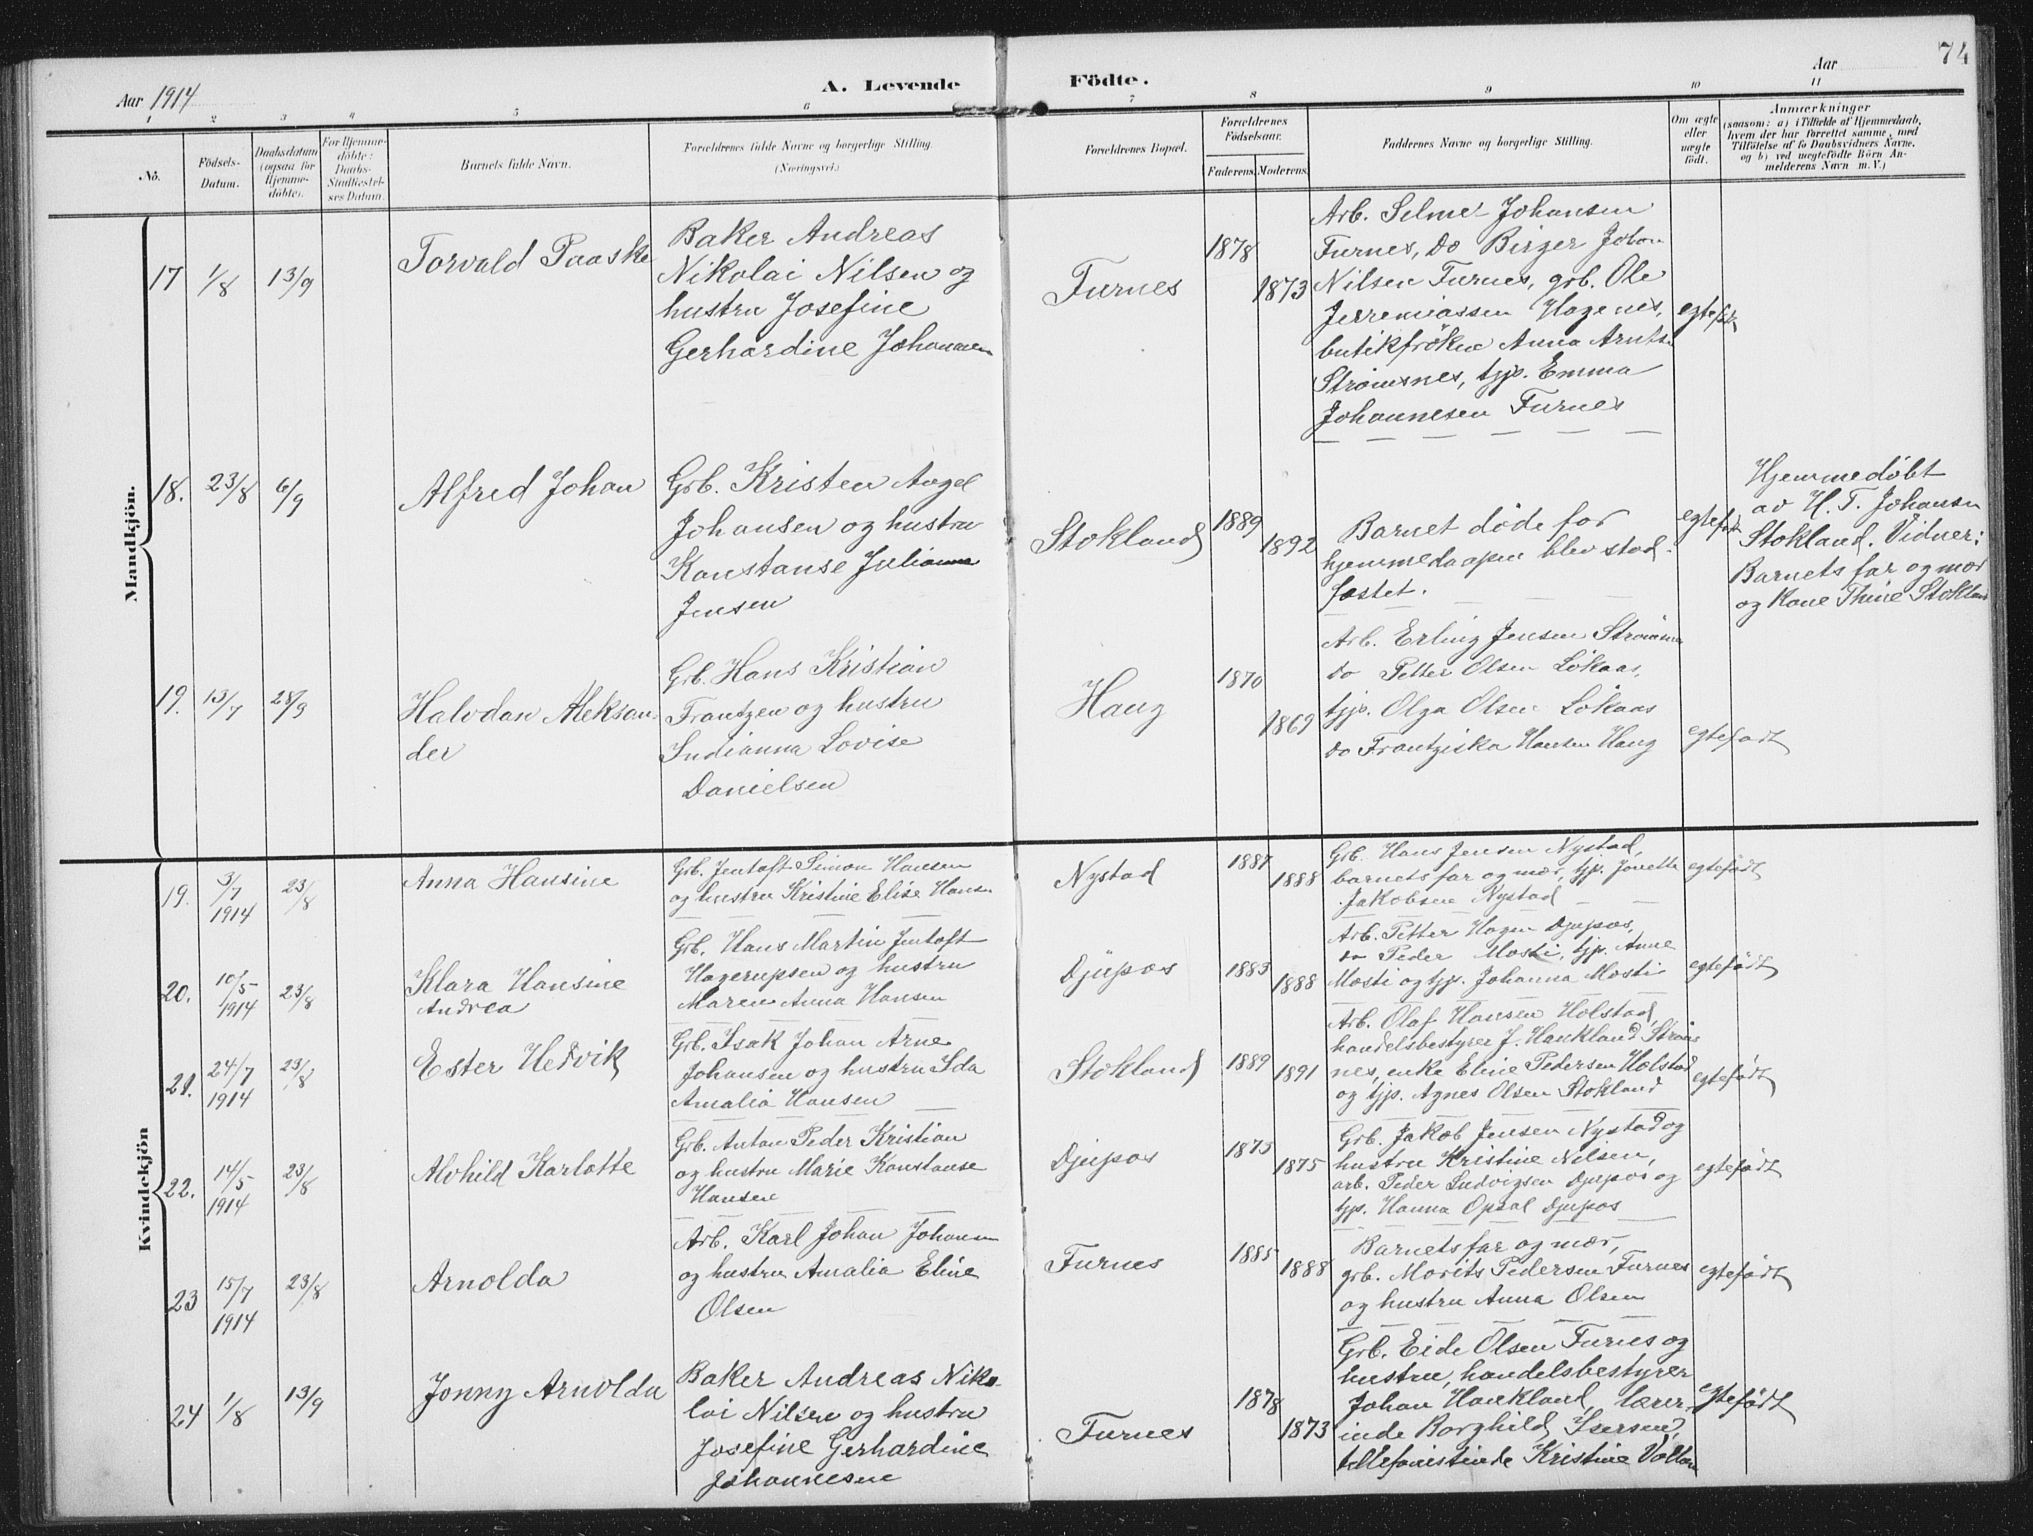 74
Aar 1914
A. Levende
Födte.
Aar
1 2 3 4 5 6 7 8 9 10 11
No.
Födsels-
Datum.
Daabsdatum
(ogsaa for
Hjemme-
döbte).
For Hjemme-
döbte:
Daabs-
Stadfæstel-
ses Datum.
Barnets fulde Navn.
Forældrenes fulde Navne og borgerlige Stilling.
(Næringsvei.)
Forældrenes Bopæl.
Forældrenes
Födselsaar.
Faderens. Moderens.
Faddernes Navne og borgerlige Stilling.
Om ægte
eller
uægte
födt.
Anmærkninger
(saasom: a) i Tilfælde af Hjemmedaab,
hvem der har forrettet samme, med
Tilföielse af to Daabsvidners Navne,
og b) ved uægtefödte Börn An-
melderens Navn m. V.)
Mandkjön.
17 1/8 13/9
Torvald Paaske
Baker Andreas
Nikolai Nilsen og
hustru Josefine
Gerhardine Johannesen
Furnes
1878
1873
Arb. Selmer Johansen
Furnes, do Birger Johan
Nilsen Furnes, grb. Ole
Jerremiassen Hagenes,
butikfröken Anna Arntsen
Strømsnes, tjp. Emma
Johannesen Furnes
egtefødt
18. 23/8 6/9
Alfred Johan
Grb. Kristen Angel
Johansen og hustru
Konstanse Julianne
Jensen
Stokland
1889
1892
Barnet døde før
hjemmedaapen blev stad-
fæstet.
egtefødt
Hjemmedöbt
av H. T. Johansen
Stokland. Vidner:
Barnets far og mor
og Kone Thine Stokland
19. 13/7 28/9
Halvdan Aleksan-
der
Grb. Hans Kristian
Frantzen og hustru
Indianna Lovise
Danielsen
Haug
1870
1869
Arb. Erling Jensen Strømsnes
do Petter Olsen Løkaas,
tjp. Olga Olsen Løkaas
do Frantziska Hansen Haug
egtefødt
Kvindekjön
19. 3/7 1914 23/8
Anna Hansine
Grb. Jentoft Simon Hansen
og hustru Kristine Elise Hansen
Nystad
1887
1888
Grb. Hans Jensen Nystad,
barnets far og mor, tjp. Jonette
Jakobsen Nystad
egtefödt
20. 10/5 1914 23/8
Klara Hansine
Andrea
Grb. Hans Martin Jentoft
Hagerupsen og hustru
Maren Anna Hansen
Djupos
1883
1888
Arb. Petter Hagen Djupos,
do Peder Mosti, tjp. Anne
Mosti og tjp. Johanna Mosti
egtefödt
21. 24/7 1914 23/8
Ester Hedvik
Grb. Isak Johan Arne
Johansen og hustru Ida
Amalia Hansen
Stokland
1889
1891
Arb. Olaf Hansen Holstad,
handelsbestyrer J. Haukland Strøms
nes, enke Eline Pedersen Holstad
og tjp. Agnes Olsen Stokland
egtefödt
22. 14/5 1914 23/8
Alvhild Karlotte
Grb. Anton Peder Kristian
og hustru Marie Konstanse
Hansen
Djupos
1873
1875
Grb. Jakob Jensen Nystad og
hustru Kristine Nilsen,
arb. Peder Ludvigsen Djupos og
tjp. Hanna Opsal Djupos
egtefödt
23 15/7 1914 23/8
Arnolda
Arb. Karl Johan Johansen
og hustru Amalia Eline
Olsen
Furnes
1885
1888
Barnets far og mor,
grb. Morits Pedersen Furnes
og hustru Anna Olsen
egtefödt
24 1/8 13/9
Jonny Arnolda
Baker Andreas Niko-
lai Nilsen og hustru
Josefine Gerhardine
Johannesen
Furnes
1878
1873
Grb. Eide Olsen Furnes og
hustru, handelsbestyrer
Johan Haukland, lærer-
inde Borghild Isersen,
telefonistinde Kristine Vollan
egtefödt